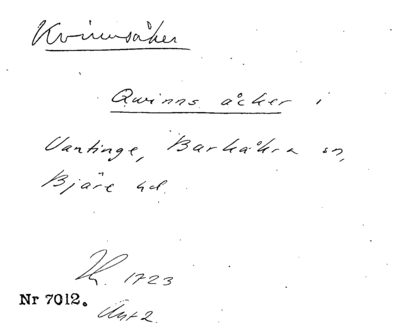 Kvinnsåker
Qwinns åcker i
Vantinge, Barkåkra sn,
Bjäre hd.
1723
Nr 7012.